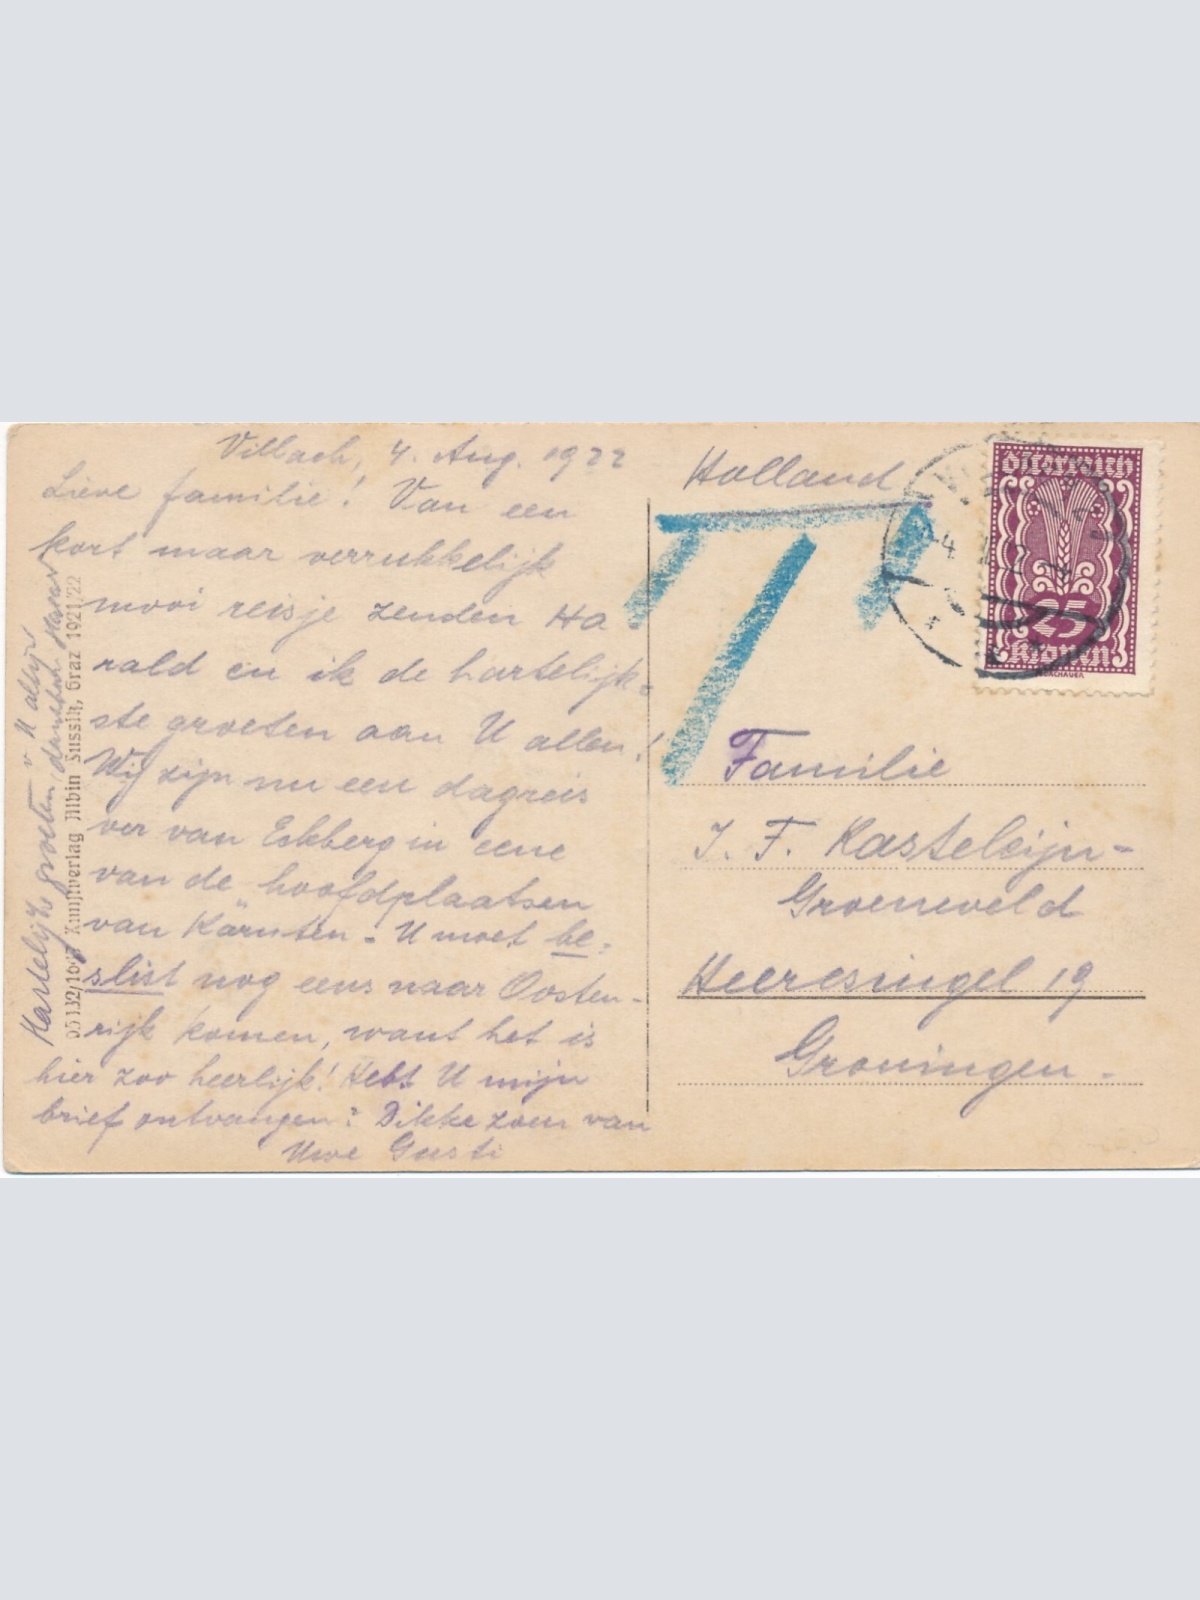 Villach, 4. Aug. 1922
Lieve familie! Van een
kort maar verrukkelijk
mooi reisje zenden Ha-
rald en ik de hartelijk-
ste groeten aan U allen!
Wij zijn nu een dagreis
ver van Eskberg in eene
van de hoofdplaatsen
van Kärnten. U moet be-
slist nog eens naar Oosten-
rijk komen, want het is
hier zoo heerlijk! Hebt U mijn
brief ontvangen? Dikke zoen van
Uwe Gusti
Hartelijke groeten v U aller
65132/16 Kunstverlag Albin Sussik, Graz 1921/22
Holland
T
Österreich
25
Kronen
Familie
J. F. Kasteleijn-
Groeneveld
Heeresingel 19
Groningen-